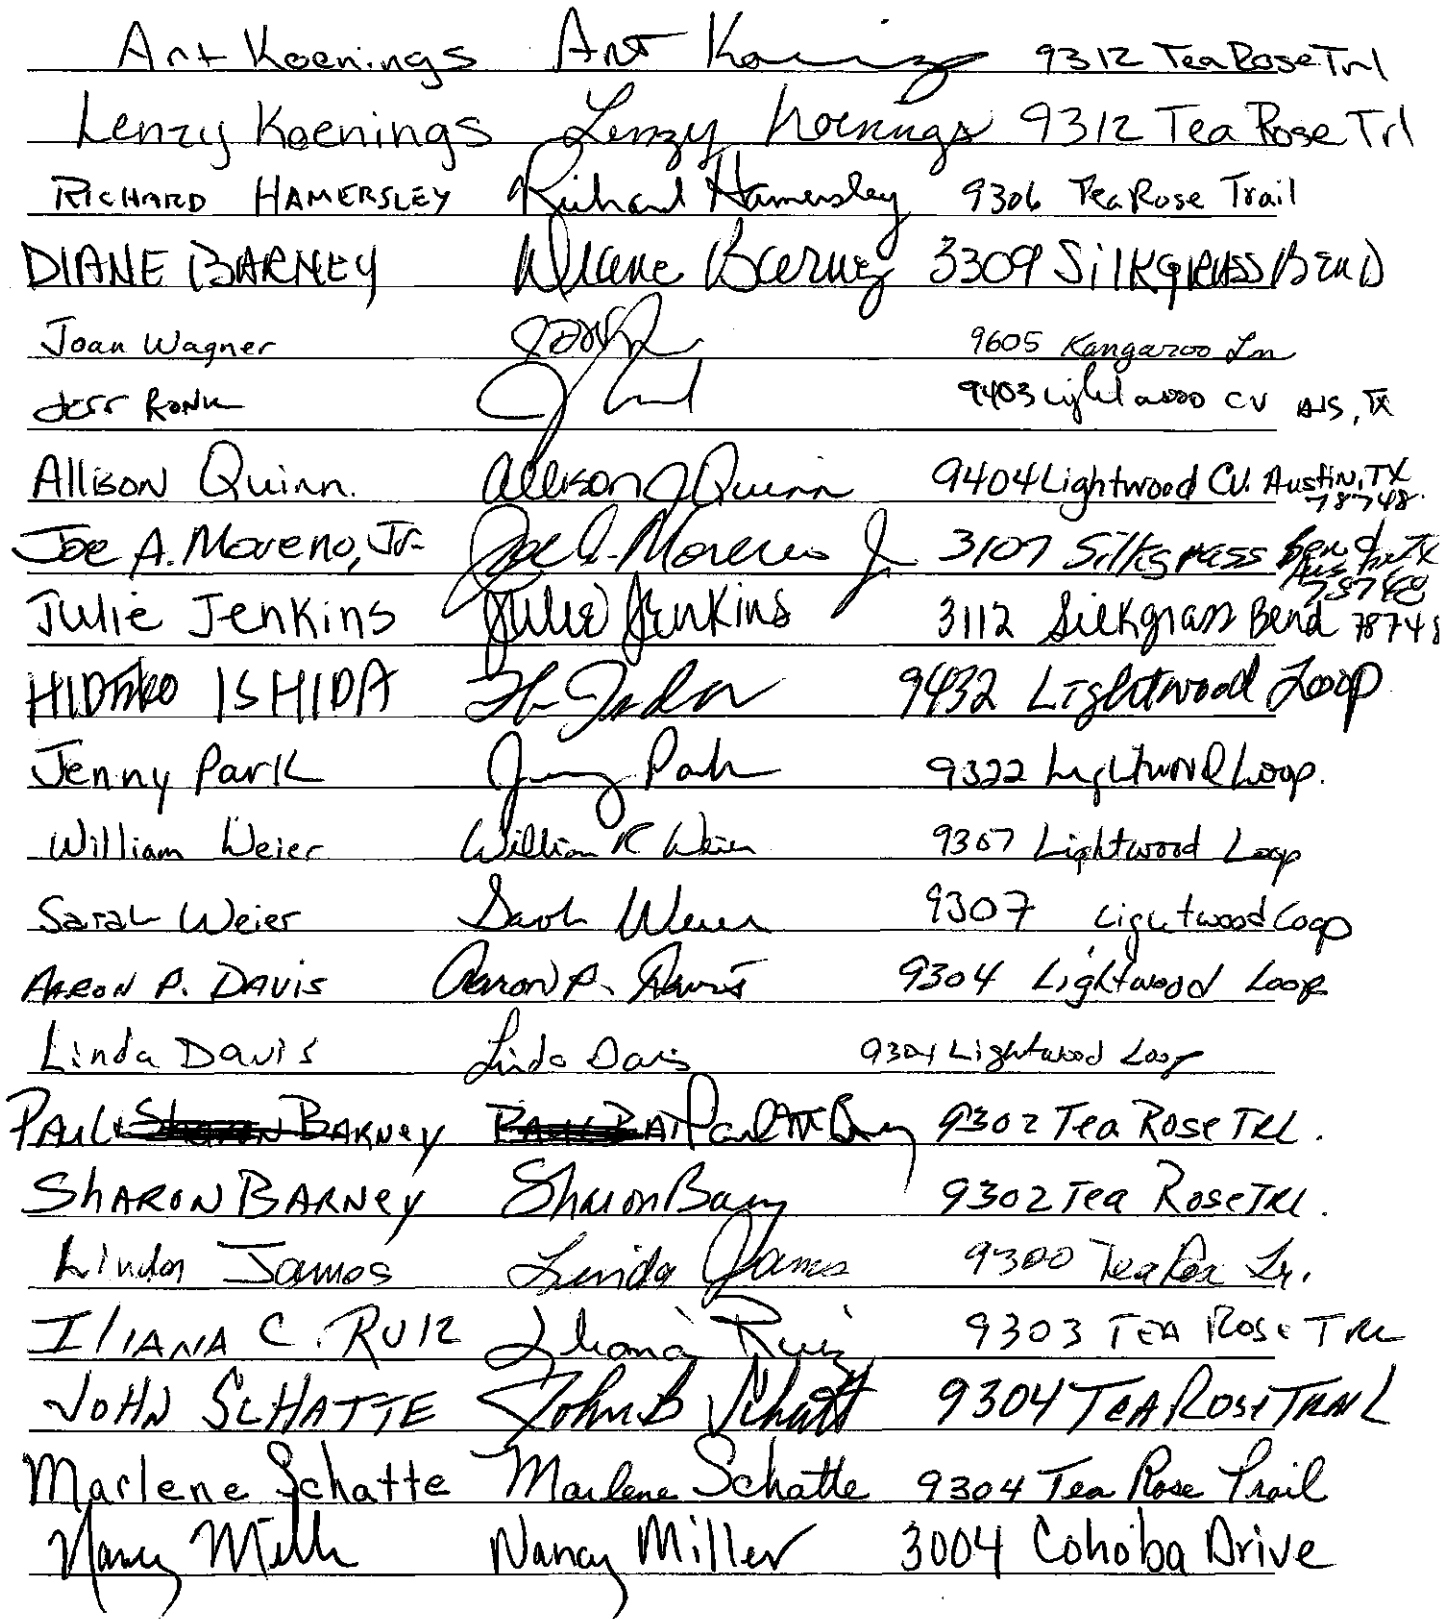 Art Koenings Art Koenings 9312 Tea Rose Trl
Lenzy Koenings Lenzy Koenings 9312 Tea Rose Trl
RICHARD HAMERSLEY Richard Hamersley 9306 Tea Rose Trail
DIANE BARNEY Diane Barney 3309 SilkgRASS BEND
Joan Wagner 9605 Kangaroo Ln
Jeff RONK 9403 Lightwood CV AUS, TX
Allison Quinn. Allison J Quinn 9404 Lightwood CV. Austin, TX 78748.
Joe A. Moreno, Jr. Joe A. Moreno Jr 3107 Silkgrass Bend Austin TX 78748
Julie Jenkins Julie Jenkins 3112 Silkgrass Bend 78748
HIDEKO ISHIDA 9432 Lightwood Loop
Jenny Park Jenny Park 9322 Lightwood Loop.
William Weier William R Weier 9307 Lightwood Loop
Sarah Weier Sarah Weier 9307 Lightwood Loop
AARON P. DAVIS Aaron P. Davis 9304 Lightwood Loop
Linda Davis Linda Davis 9304 Lightwood Loop
PAUL BARNEY Paul M Barney 9302 Tea Rose TRL.
SHARON BARNEY Sharon Barney 9302 Tea Rose TRL.
Linda James Linda James 9300 Tea Rose Tr.
ILIANA C. RUIZ Iliana Ruiz 9303 TEA ROSE TRL
JOHN SCHATTE John B Schatte 9304 TEA ROSE TRAIL
Marlene Schatte Marlene Schatte 9304 Tea Rose Trail
Nancy Miller Nancy Miller 3004 Cohoba Drive